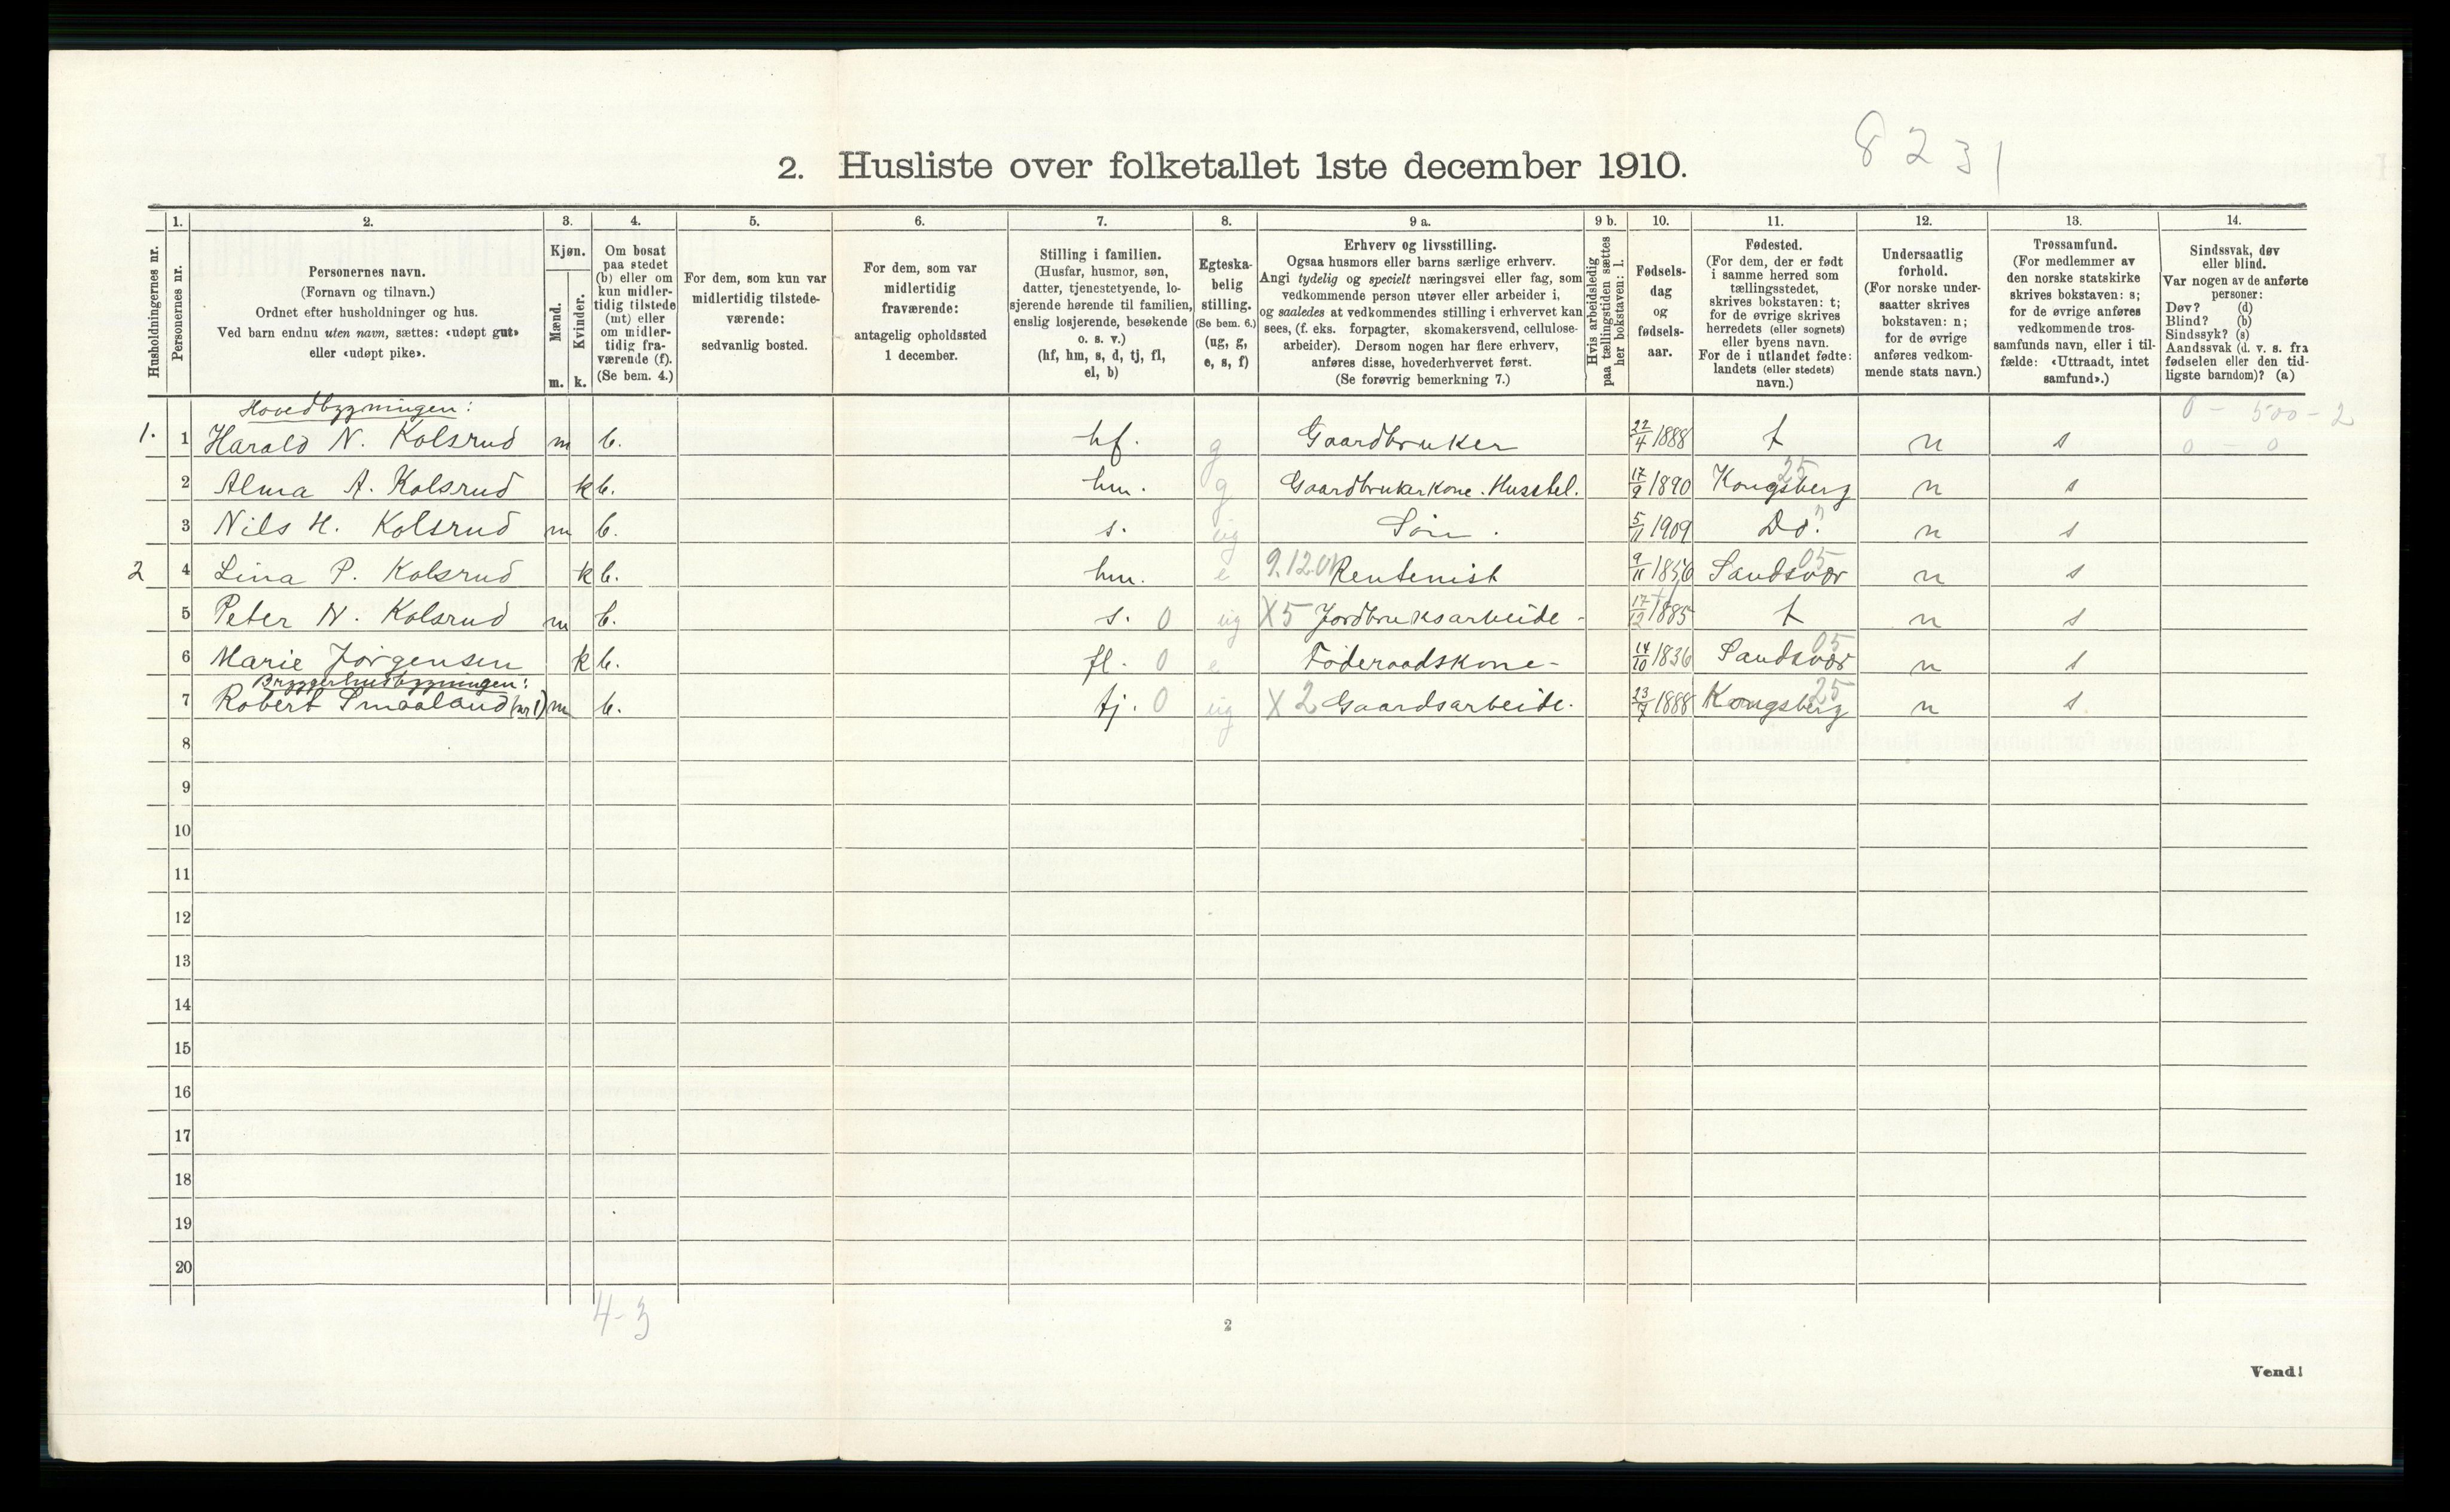 8231
2. Husliste over folketallet 1ste december 1910.
Husholdningernes nr.
1. Personernes nr.
2. Personernes navn.
(Fornavn og tilnavn.)
Ordnet efter husholdninger og hus.
Ved barn endnu uten navn, sættes: «udøpt gut»
eller «udøpt pike».
3. Kjøn.
Mænd. m.
Kvinder. k.
4. Om bosat
paa stedet
(b) eller om
kun midler-
tidig tilstede
(mt) eller
om midler-
tidig fra-
værende (f).
(Se bem. 4.)
5. For dem, som kun var
midlertidig tilstede-
værende:
sedvanlig bosted.
6. For dem, som var
midlertidig
fraværende:
antagelig opholdssted
1 december.
7. Stilling i familien.
(Husfar, husmor, søn,
datter, tjenestetyende, lo-
sjerende hørende til familien,
enslig losjerende, besøkende
o. s. v.)
(hf, hm, s, d, tj, fl,
el, b)
8. Egteska-
belig
stilling.
(Se bem. 6.)
(ug, g,
e, s, f)
9 a. Erhverv og livsstilling.
Ogsaa husmors eller barns særlige erhverv.
Angi tydelig og specielt næringsvei eller fag, som
vedkommende person utøver eller arbeider i,
og saaledes at vedkommendes stilling i erhvervet kan
sees, (f. eks. forpagter, skomakersvend, cellulose-
arbeider). Dersom nogen har flere erhverv,
anføres disse, hovederhvervet først.
(Se forøvrig bemerkning 7.)
9 b. Hvis arbeidsledig
paa tællingstiden sættes
her bokstaven: l.
10. Fødsels-
dag
og
fødsels-
aar.
11. Fødested.
(For dem, der er født
i samme herred som
tællingsstedet,
skrives bokstaven: t;
for de øvrige skrives
herredets (eller sognets)
eller byens navn.
For de i utlandet fødte:
landets (eller stedets)
navn.)
12. Undersaatlig
forhold.
(For norske under-
saatter skrives
bokstaven: n;
for de øvrige
anføres vedkom-
mende stats navn.)
13. Trossamfund.
(For medlemmer av
den norske statskirke
skrives bokstaven: s;
for de øvrige anføres
vedkommende tros-
samfunds navn, eller i til-
fælde: «Uttraadt, intet
samfund».)
14. Sindssvak, døv
eller blind.
Var nogen av de anførte
personer:
Døv? (d)
Blind? (b)
Sindssyk? (s)
Aandssvak (d. v. s. fra
fødselen eller den tid-
ligste barndom)? (a)
Hovedbygningen: 0 - 500 - 2
1. 1 Harald N. Kolsrud m b. hf. g Gaardbruker 22/4 1888 t n s 0 - 0
2 Alma A. Kolsrud k b. hm. g Gaardbrukerkone. Husstel. 17/9 1890 Kongsberg 25 n s
3 Nils H. Kolsrud m b. s. ug Søn. 5/11 1909 Do. n s
2 4 Lina P. Kolsrud k b. hm. e 9.12.01 Rentenist 9/11 1856 Sandsvær 05 n s
5 Peter N. Kolsrud m b. s. 0 ug X5 Jordbruksarbeide - 17/12 1885 t n s
6 Marie Jørgensen k b. fl. 0 e Føderaadskone - 14/10 1836 Sandsvær 05 n s
Bryggerhusbygningen:
7 Robert Smaaland (nr 1) m b. tj. 0 ug X 2 Gaardsarbeide. 23/7 1888 Kongsberg 25 n s
8
9
10
11
12
13
14
15
16
17
18
19
20
4-3
2
Vend!